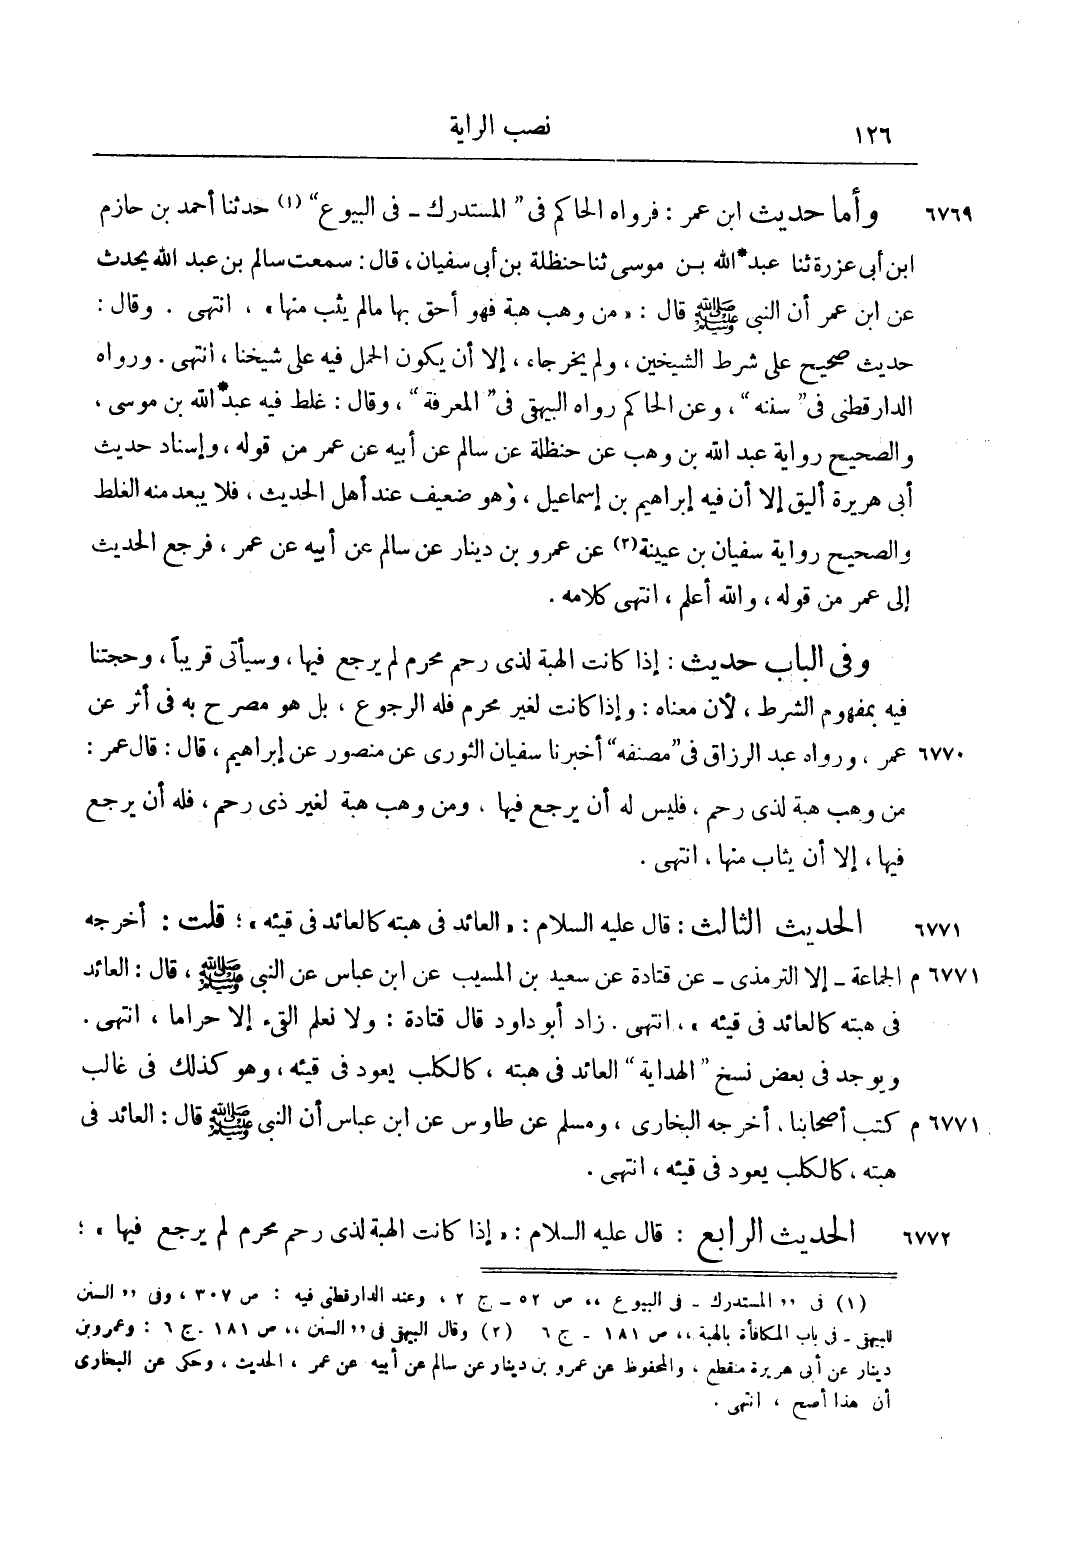 ١٢٦ نصب الراية
٦٧٦٩ وأما حديث ابن عمر : فرواه الحاكم فى ” المستدرك ـ فى البيوع “ (١) حدثنا أحمد بن حازم
ابن أبى عزرة ثنا عبد * الله بن موسى ثنا حنظلة بن أبى سفيان ، قال : سمعت سالم بن عبد الله يحدث
عن ابن عمر أن النبى ﷺ قال : « من وهب هبة فهو أحق بها مالم يثب منها » ، انتهى . وقال :
حديث صحيح على شرط الشيخين ، ولم يخرجاه ، إلا أن يكون الحمل فيه على شيخنا ، انتهى . ورواه
الدارقطنى فى ” سننه “ ، وعن الحاكم رواه البيهقى فى ” المعرفة “ ، وقال : غلط فيه عبد * الله بن موسى ،
والصحيح رواية عبد الله بن وهب عن حنظلة عن سالم عن أبيه عن عمر من قوله ، وإسناد حديث
أبى هريرة أليق إلا أن فيه إبراهيم بن إسماعيل ، وهو ضعيف عند أهل الحديث ، فلا يبعد منه الغلط
والصحيح رواية سفيان بن عيينة (٢) عن عمرو بن دينار عن سالم عن أبيه عن عمر ، فرجع الحديث
إلى عمر من قوله ، والله أعلم ، انتهى كلامه .
وفى الباب حديث : إذا كانت الهبة لذى رحم محرم لم يرجع فيها ، وسيأتى قريباً ، وحجتنا
فيه بمفهوم الشرط ، لأن معناه : وإذا كانت لغير محرم فله الرجوع ، بل هو مصرح به فى أثر عن
٦٧٧٠ عمر ، ورواه عبد الرزاق فى ” مصنفه “ أخبرنا سفيان الثورى عن منصور عن إبراهيم ، قال : قال عمر :
من وهب هبة لذى رحم ، فليس له أن يرجع فيها . ومن وهب هبة لغير ذى رحم ، فله أن يرجع
فيها ، إلا أن يثاب منها ، انتهى .
٦٧٧١ الحديث الثالث : قال عليه السلام : « العائد فى هبته كالعائد فى قيئه » ؛ قلت : أخرجه
٦٧٧١ م الجماعة ـ إلا الترمذى ـ عن قتادة عن سعيد بن المسيب عن ابن عباس عن النبى ﷺ ، قال : العائد
فى هبته كالعائد فى قيئه » ، انتهى . زاد أبو داود قال قتادة : ولا نعلم القىء إلا حراما ، انتهى .
ويوجد فى بعض نسخ ” الهداية “ العائد فى هبته ، كالكلب يعود فى قيئه ، وهو كذلك فى غالب
٦٧٧١ م كتب أصحابنا . أخرجه البخارى ، ومسلم عن طاوس عن ابن عباس أن النبى ﷺ قال : العائد فى
هبته ، كالكلب يعود فى قيئه ، انتهى .
٦٧٧٢ الحديث الرابع : قال عليه السلام : « إذا كانت الهبة لذى رحم محرم لم يرجع فيها » ؛
(١) فى ,, المستدرك ـ فى البيوع ,, ص ٥٢ ـ ج ٢ ، وعند الدارقطنى فيه : ص ٣٠٧ ، وفى ,, السنن
للبيهقى ـ فى باب المكافأة بالهبة ,, ص ١٨١ ـ ج ٦ (٢) وقال البيهقى فى ,, السنن ,, ص ١٨١ . ج ٦ : وعمرو بن
دينار عن أبى هريرة منقطع ، والمحفوظ عن عمرو بن دينار عن سالم عن أبيه عن عمر ، الحديث ، وحكى عن البخارى
أن هذا أصح ، انتهى .